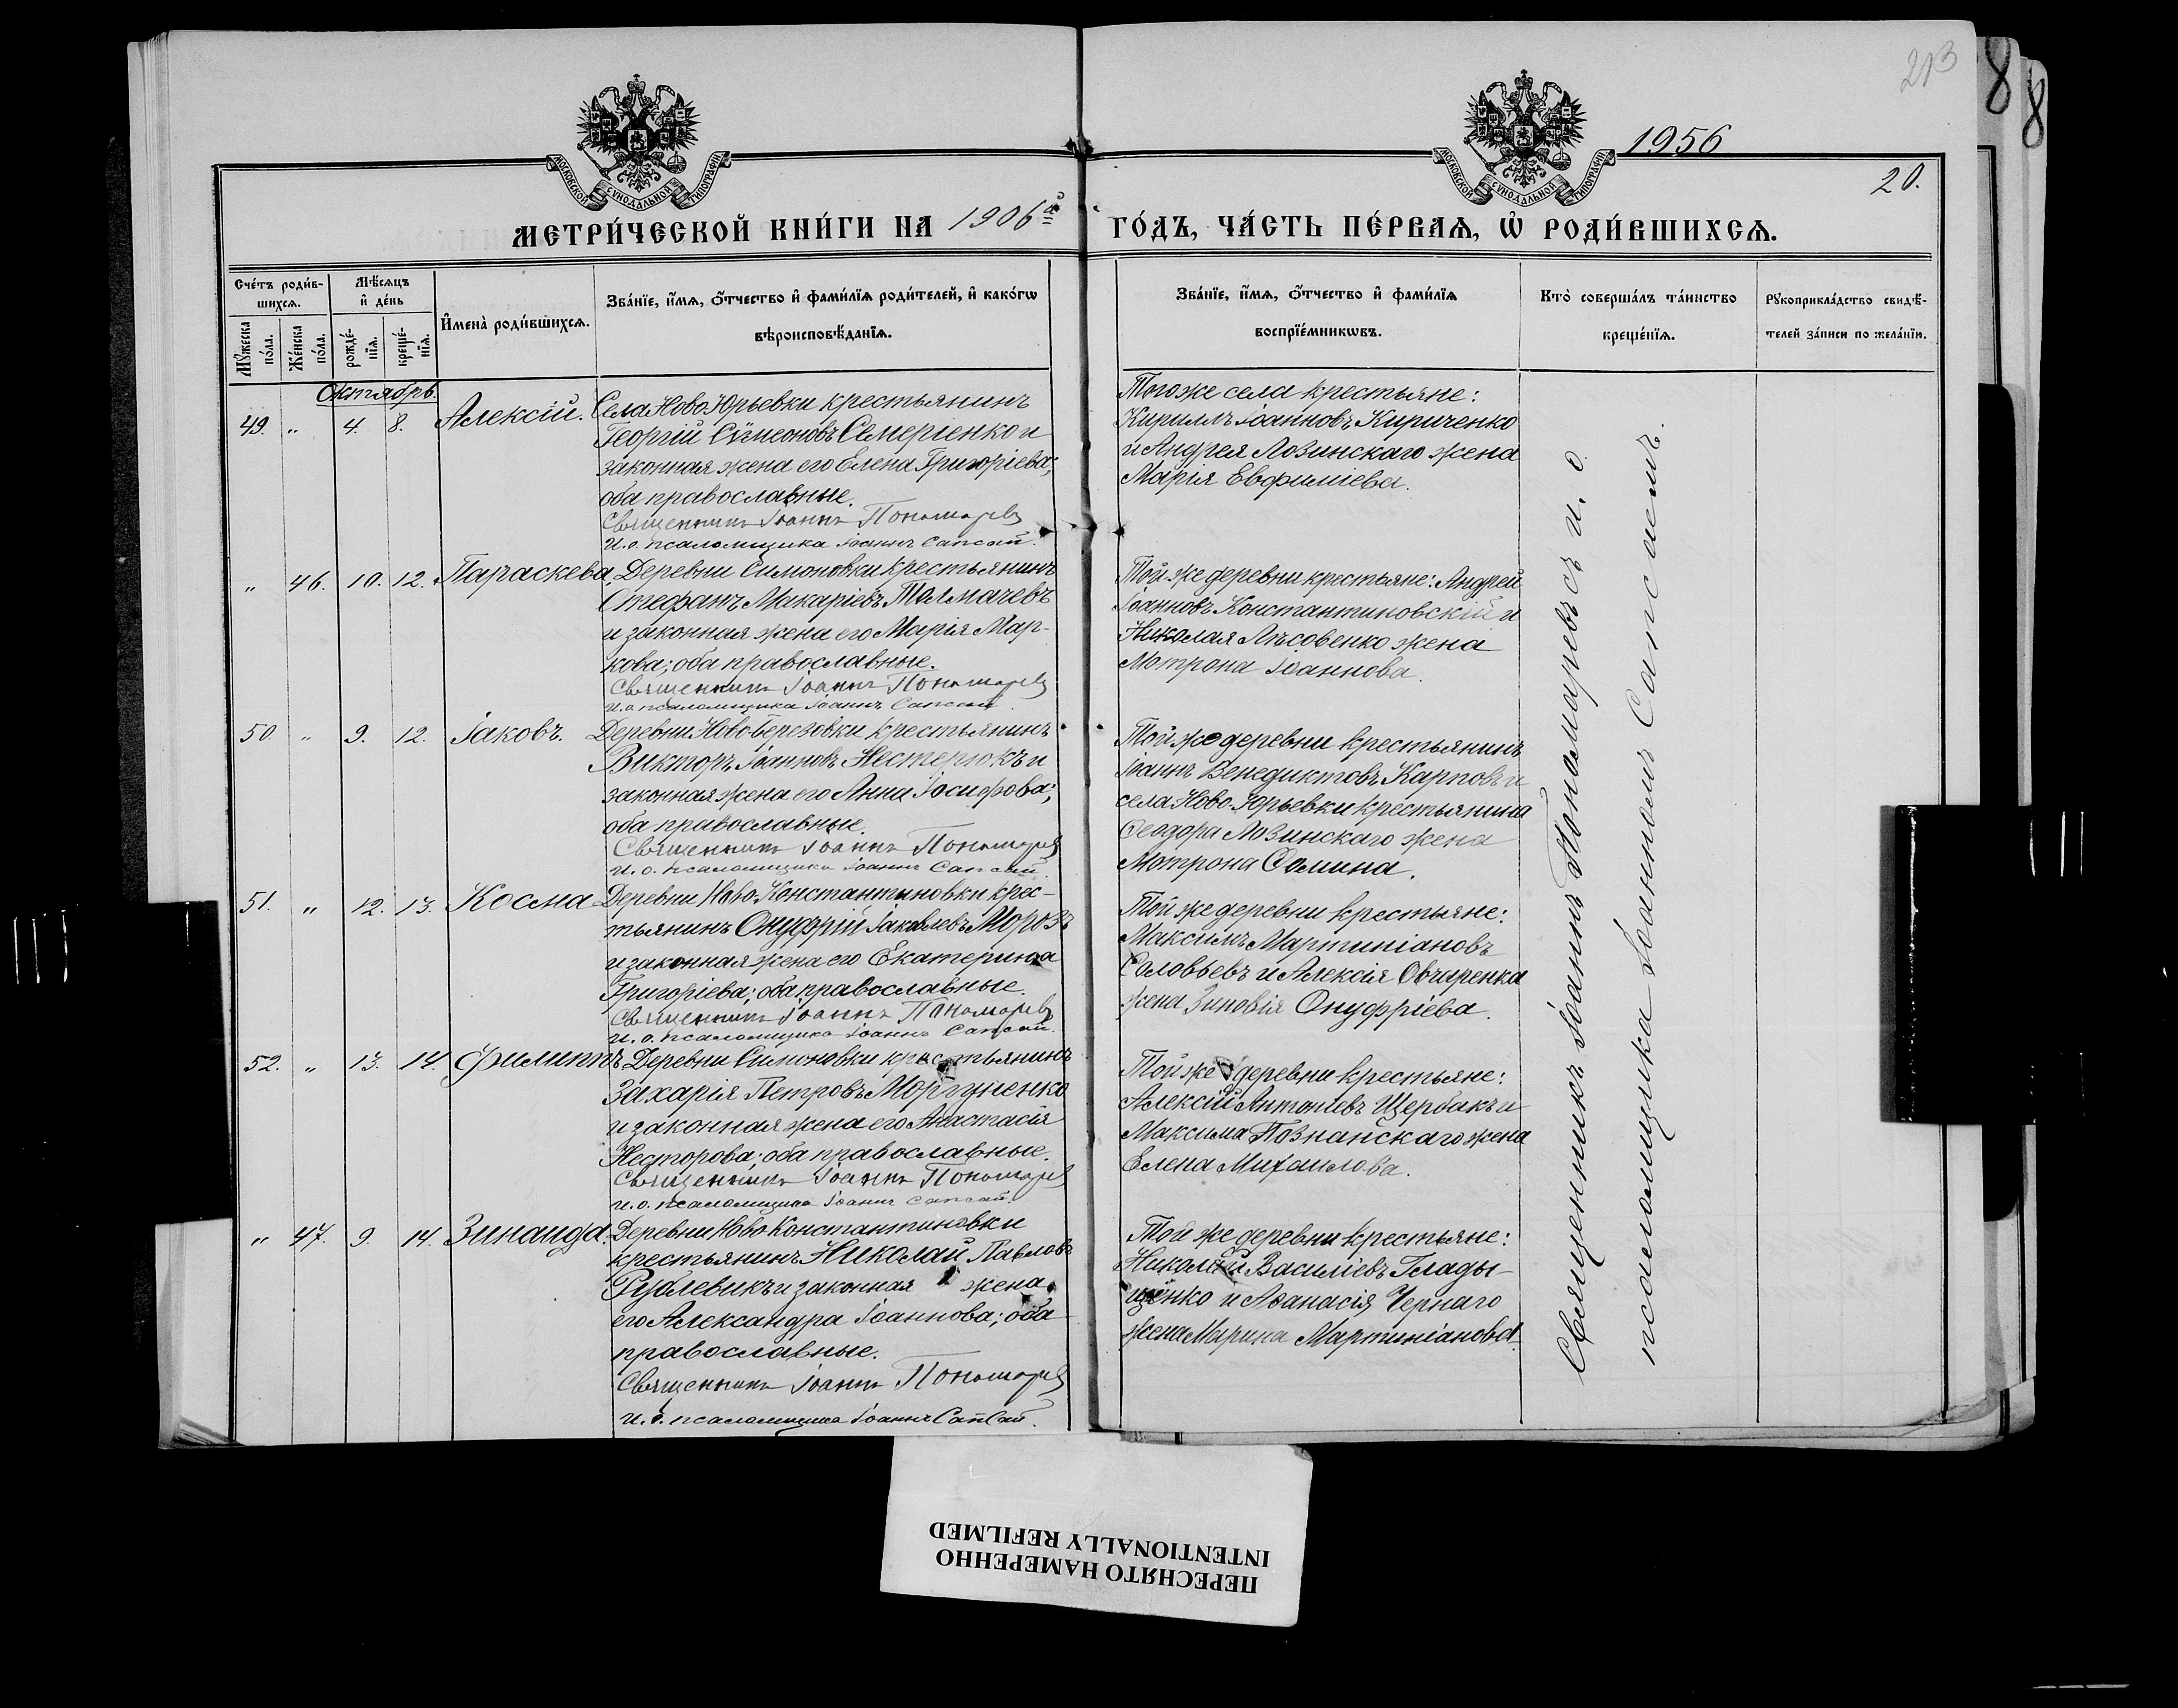 213
8
8
1956
20.
МОСКОВСКОЙ СУНОДАЛЬНОЙ ТИПОГРАФІИ
МОСКОВСКОЙ СУНОДАЛЬНОЙ ТИПОГРАФІИ
МЕТРИ́ЧЕСКОЙ КНИ́ГИ НА 1906й ГО́ДЪ, ЧА́СТЬ ПЕ́РВАѦ, Ѡ҆ РОДИ́ВШИХСѦ.
Сче́тъ роди́в-
шихсѧ.
Мꙋ́жеска
по́ла.
Же́нска
по́ла.
Мѣ́сѧцъ
и҆ де́нь
рожде́-
нїѧ.
креще́-
нїѧ.
И҆мена̀ роди́вшихсѧ.
Зва́нїе, и҆́мѧ, ѻ҆́тчество и҆ фами́лїѧ роди́телей, и҆ како́гѡ
вѣроисповѣ́данїѧ.
Зва́нїе, и҆́мѧ, ѻ҆́тчество и҆ фами́лїѧ
воспрїе́мникѡвъ.
Кто̀ соверша́лъ та́инство
креще́нїѧ.
Рꙋкоприкла́дство свидѣ́-
телей за́писи по жела́нїю.
Октябрь.
49. " 4. 8. Алексій.
Села Ново Юрьевки крестьянинъ
Георгій Сѵмеоновъ Семеріенко и
законная жена его Елена Григоріева;
оба православные.
Священникъ Іоаннъ Пономаревъ
И. о. псаломщика Іоаннъ Сапсай.
Того же села крестьяне:
Кириллъ Іоанновъ Кириченко
и Андрея Лозинскаго жена
Марія Евфиміева.
" 46. 10. 12. Параскева
Деревни Симоновки крестьянинъ
Стефанъ Макаріевъ Толмачевъ
и законная жена его Марія Мар-
кова; оба православные.
Священникъ Іоаннъ Пономаревъ
и. о. псаломщика Іоаннъ Сапсай.
Той же деревни крестьяне: Андрей
Іоанновъ Константиновскій и
Николая Лѣсовенко жена
Мотрона Іоаннова.
50. " 9. 12. Іаковъ.
Деревни Ново-Березовки крестьянинъ
Викторъ Іоанновъ Нестерюкъ и
законная жена его Анна Іосифова;
оба православные.
Священникъ Іоаннъ Пономаревъ
И. о. псаломщика Іоаннъ Сапсай.
Той же деревни крестьянинъ
Іоаннъ Венедиктовъ Карповъ и
села Ново-Юрьевки крестьянина
Ѳеодора Лозинскаго жена
Мотрона Ѳомина.
51. " 12. 13. Косма
Деревни Ново-Константиновки крес-
тьянинъ Онуфрій Іаковлевъ Морозъ
и законная жена его Екатерина
Григоріева; оба православные.
Священникъ Іоаннъ Пономаревъ
И. о. псаломщика Іоаннъ Сапсай.
Той же деревни крестьяне:
Максимъ Мартиніановъ
Соловьевъ и Алексія Овчиренка
жена Зиновія Онуфріева.
52. " 13. 14. Филиппъ
Деревни Симоновки крестьянинъ
Захарія Петровъ Моргуненко
и законная жена его Анастасія
Несторова; оба православные.
Священникъ Іоаннъ Пономаревъ
И. о. псаломщика Іоаннъ Сапсай.
Той же деревни крестьяне:
Алексій Антоніевъ Щербакъ и
Максима Познанскаго жена
Елена Михаилова.
" 47. 9. 14. Зинаида.
Деревни Ново Константиновки
крестьянинъ Николай Павловъ
Рублевикъ и законная жена
его Александра Іоаннова; оба
православные.
Священникъ Іоаннъ Пономаревъ
И. о. псаломщика Іоаннъ Сапсай.
Той же деревни крестьяне:
Николай Василіевъ Глады-
щенко и Аѳанасія Чернаго
жена Марина Мартиніанова.
Священникъ Іоаннъ Пономаревъ съ и. о.
псаломщика Іоанномъ Сапсаемъ.
ПЕРЕСНЯТО НАМЕРЕННО
INTENTIONALLY REFILMED